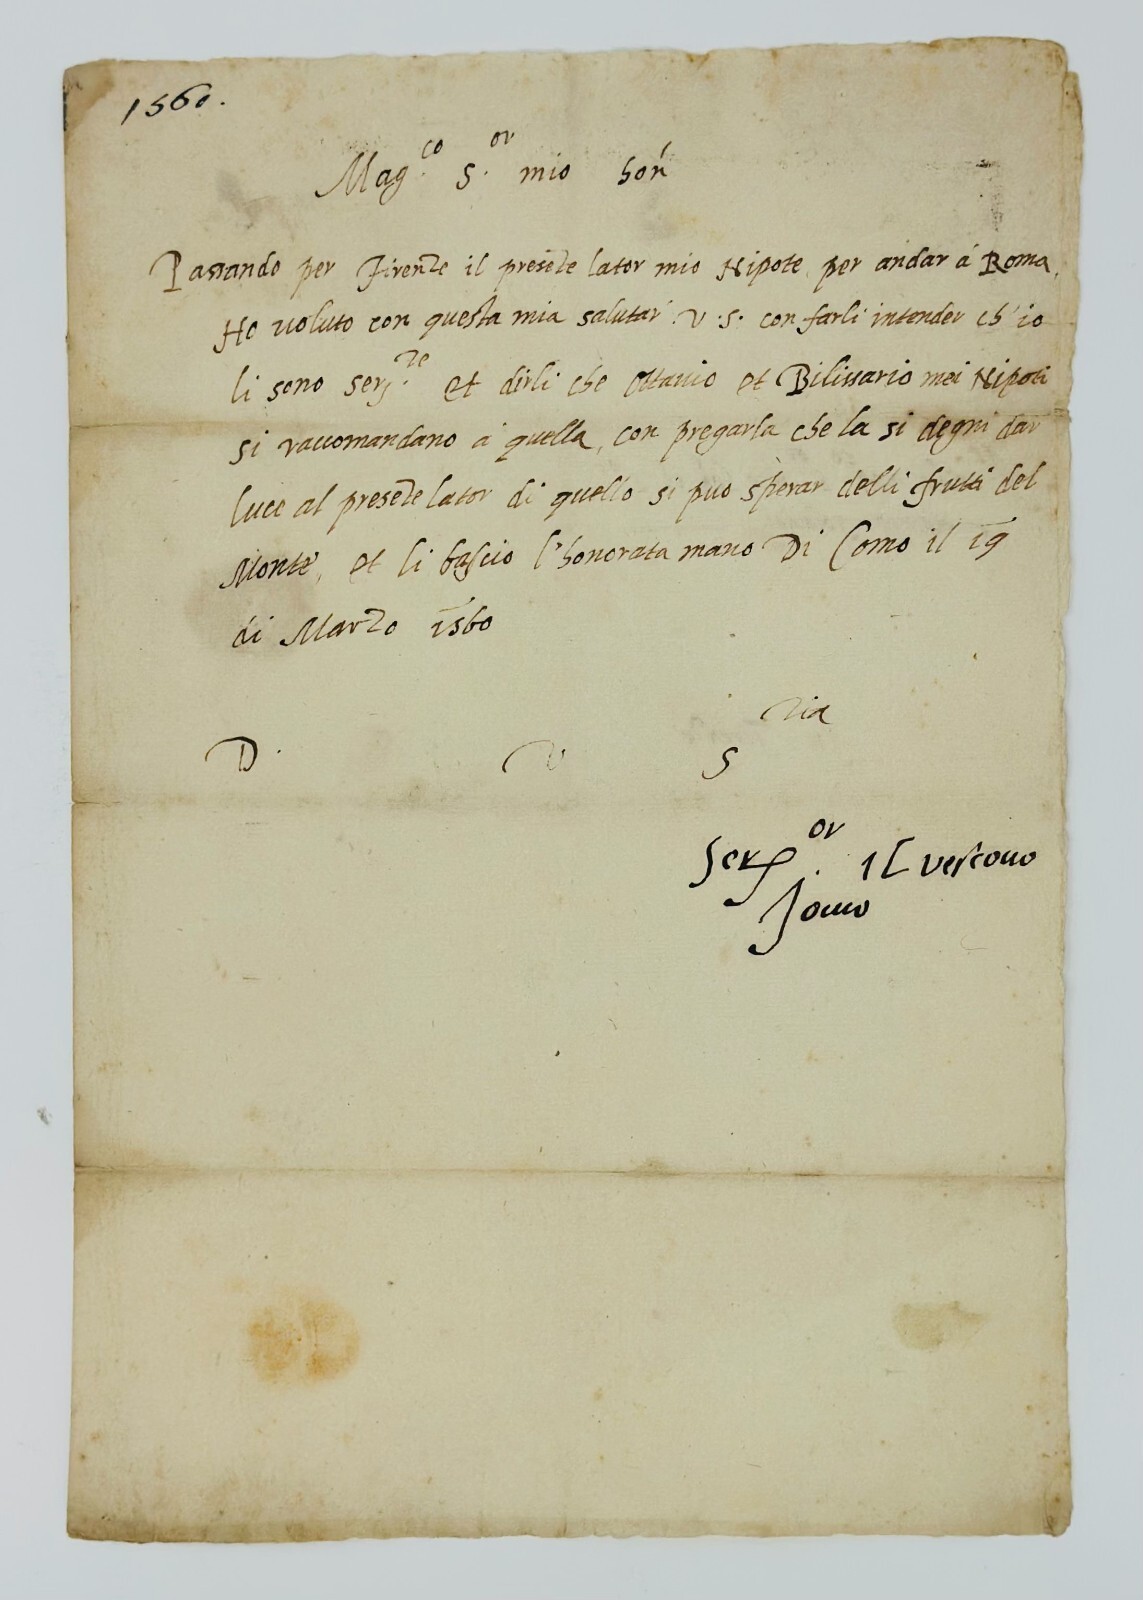 1560.
Mag.co S.or mio hon̄
Passando per Firenze il presẽte lator mio Nipote, per andar á Roma,
Ho uoluto con questa mia salutar V.S. con farli intender ch'io
li sono ser.re et dirli che Ottauio et Bilissario mei Nipoti
si raccomandano á quella, con pregarla che la si degni dar
luce al presẽte lator di quello si puo sperar delli frutti del
Monte, et li bascio l'honorata mano Di Como il 19
di Marzo 1560
D. V S ria
Ser.or il vescouo
Jouio